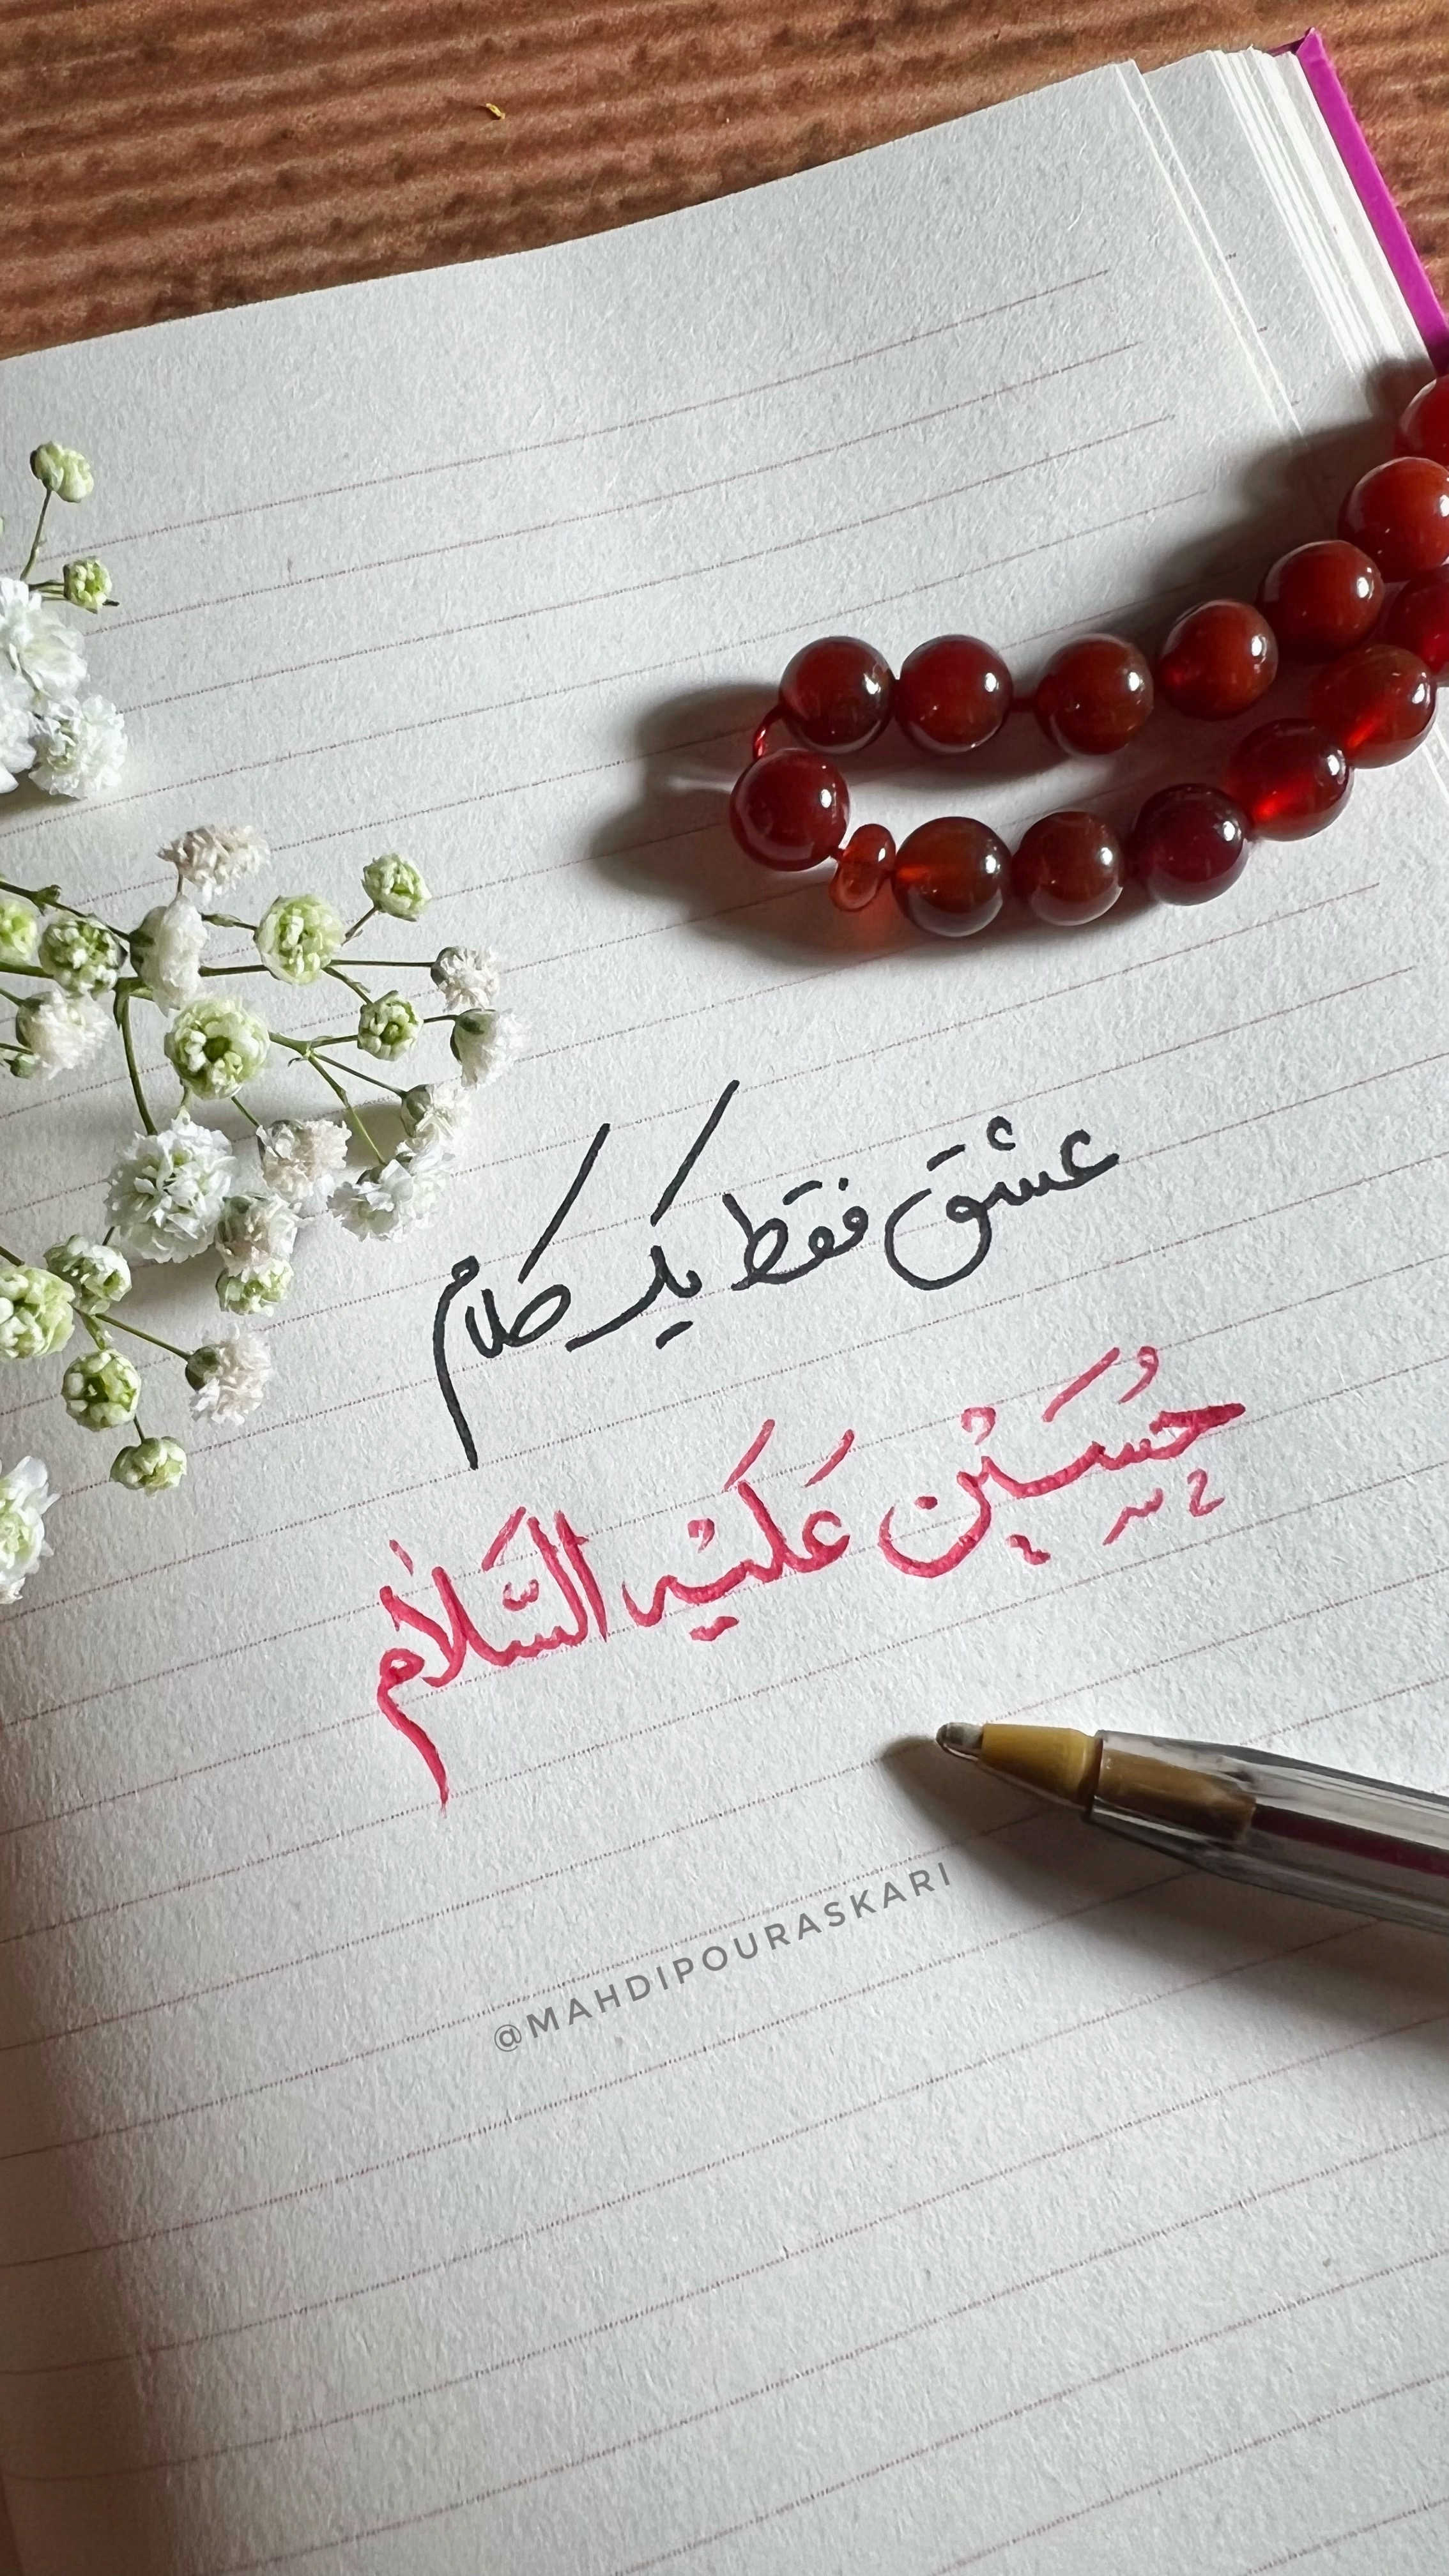 عشق فقط یک کلام
حُسَیْن عَلَیْهِ السَّلام
@MAHDIPOURASKARI